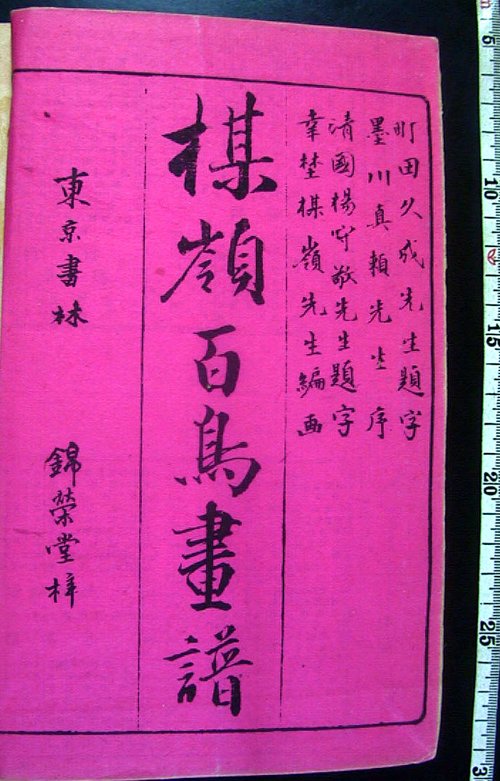 町田久成先生題字
墨川真頼先生序
清國楊守敬先生題字
幸埜楳嶺先生編画
楳嶺百鳥畫譜
東京書林 錦榮堂梓
10
15
20
25